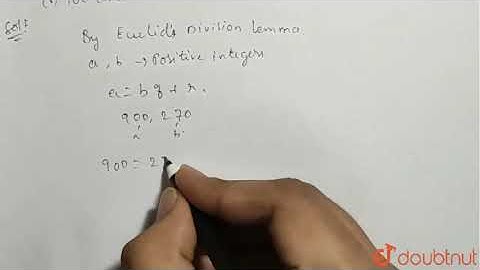 Solⁿ:
By Euclid's Division Lemma.
a, b → Positive integers
a = b q + r.
900, 270
a b.
900 = 27
doubtnut